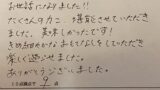 お世話になりました!!
たくさんのカニ、堪能させていただき
ました。美味しかったです!
きめ細やかなおもてなしをしていただき
楽しく過ごせました。
ありがとうございました。
9